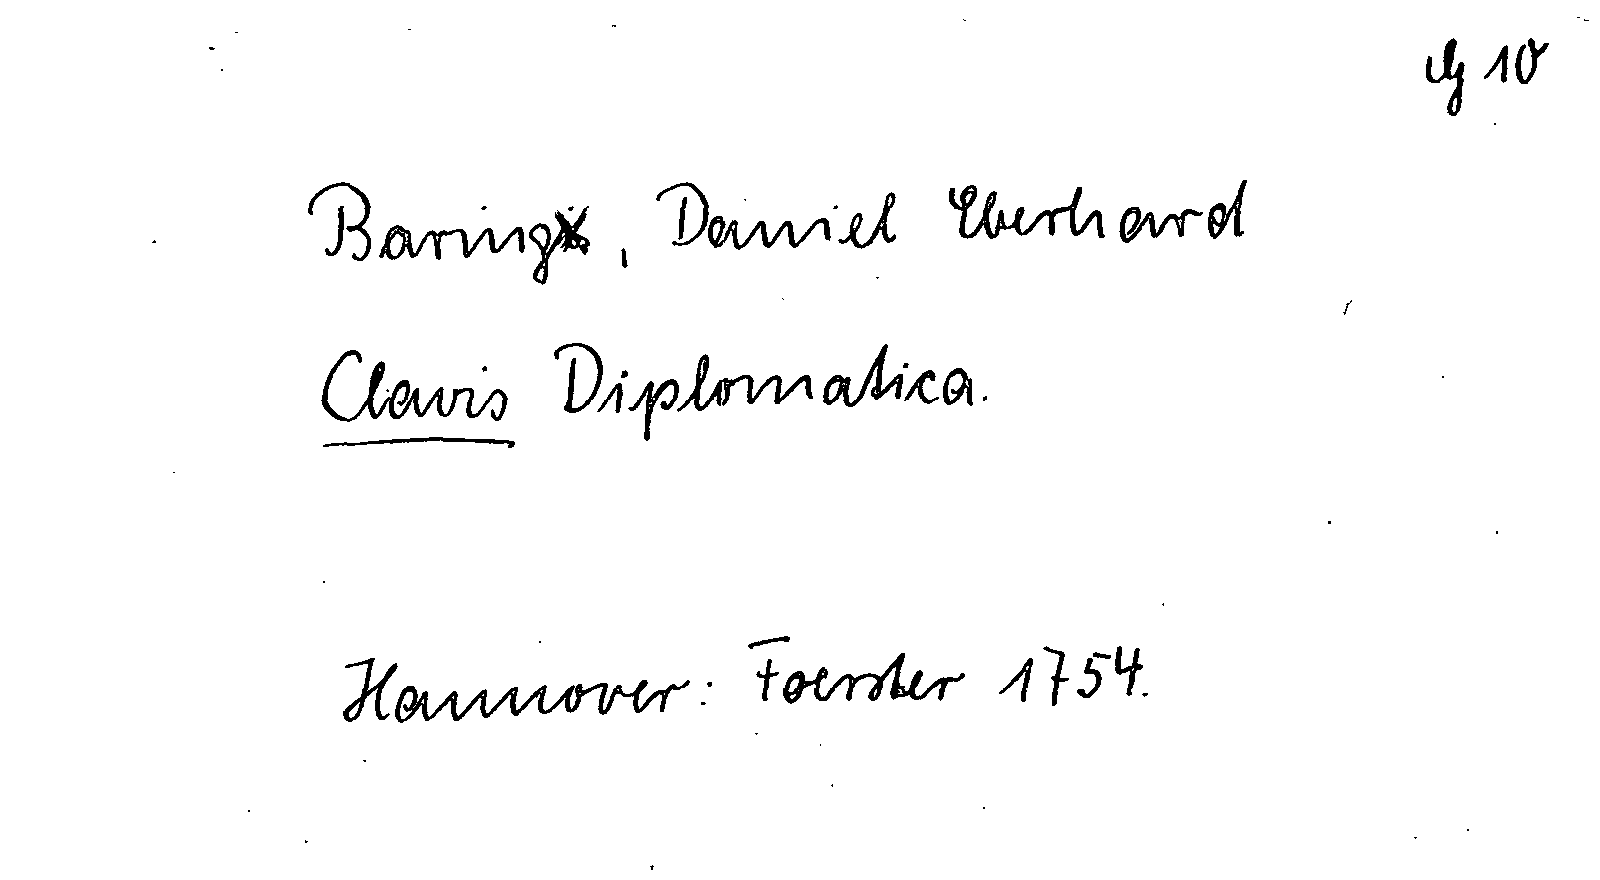 G 10
Baring, Daniel Eberhard
Clavis Diplomatica.
Hannover: Foerster 1754.